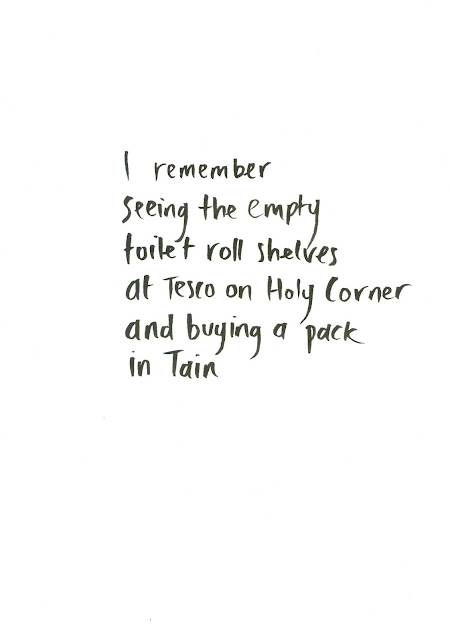 I remember
seeing the empty
toilet roll shelves
at Tesco on Holy Corner
and buying a pack
in Tain